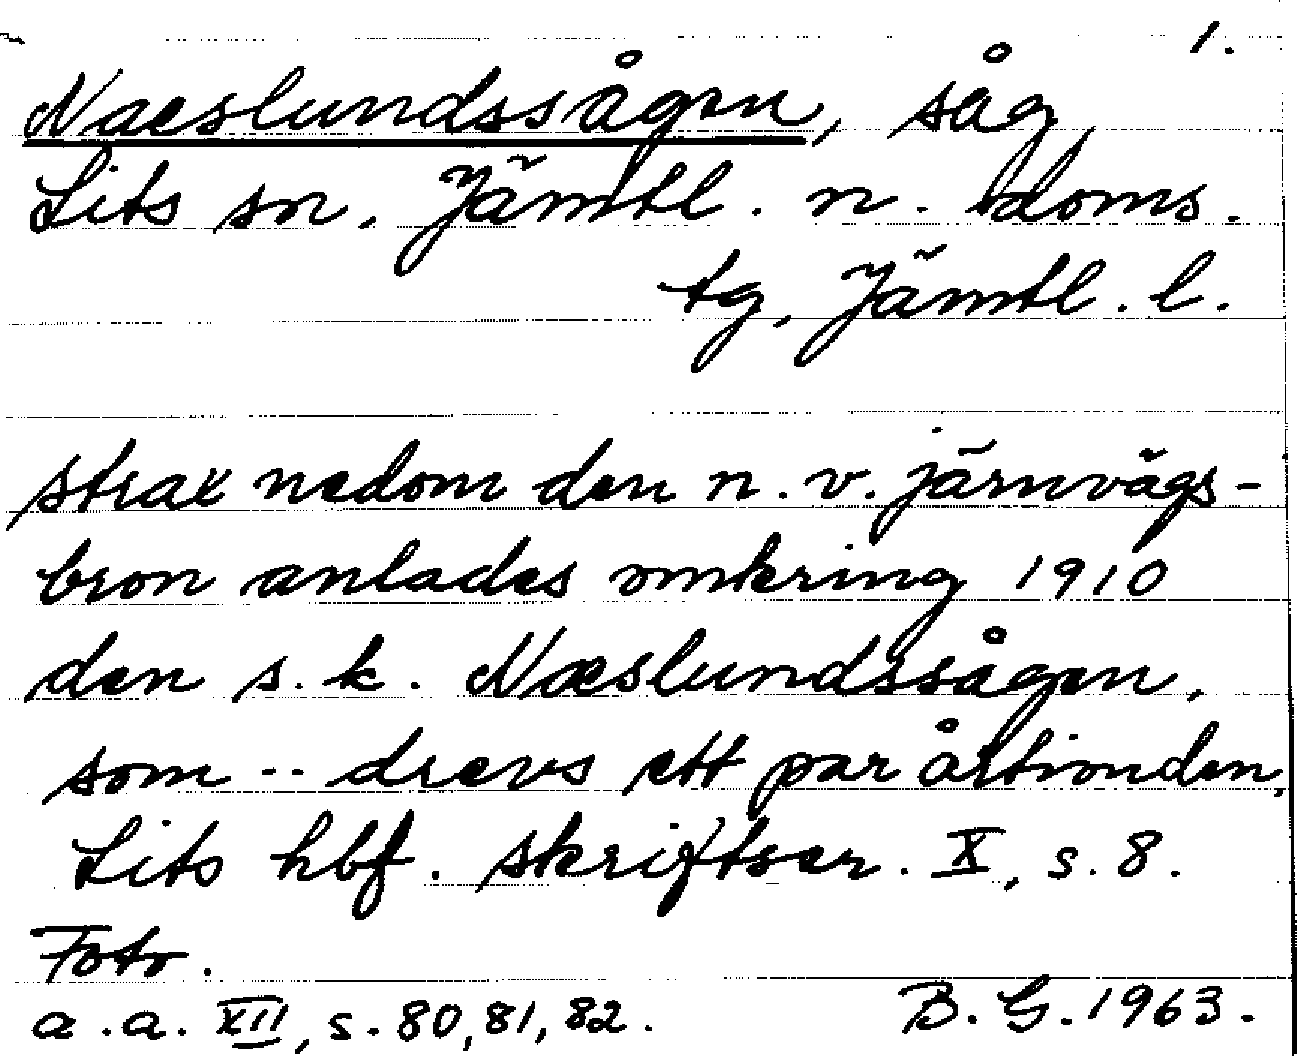 1.
Naeslundssågen, såg,
Lits sn. Jämtl. n. doms.
tg, Jämtl. l.
strax nedom den n.v. järnvägs-
bron anlades omkring 1910
den s.k. Næslundssågen,
som -- drevs ett par årtionden,
Lits hbf. skriftser. X, s. 8.
Foto.
a.a. XII, s. 80, 81, 82.
B.G. 1963.